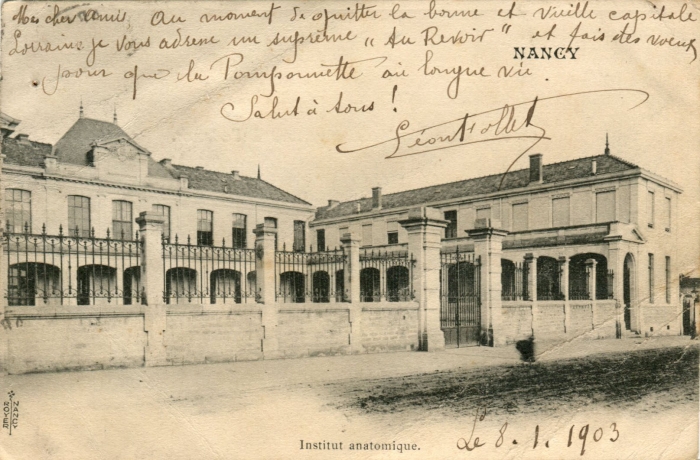 Mes chers amis, Au moment de quitter la bonne et vieille capitale
Lorraine je vous adresse un suprême "Au Revoir" et fais des voeux
NANCY
pour que la Pomponnette ait longue vie.
Salut à tous !
Léon Follet
ROYER
NANCY
Institut anatomique.
Le 8.1.1903